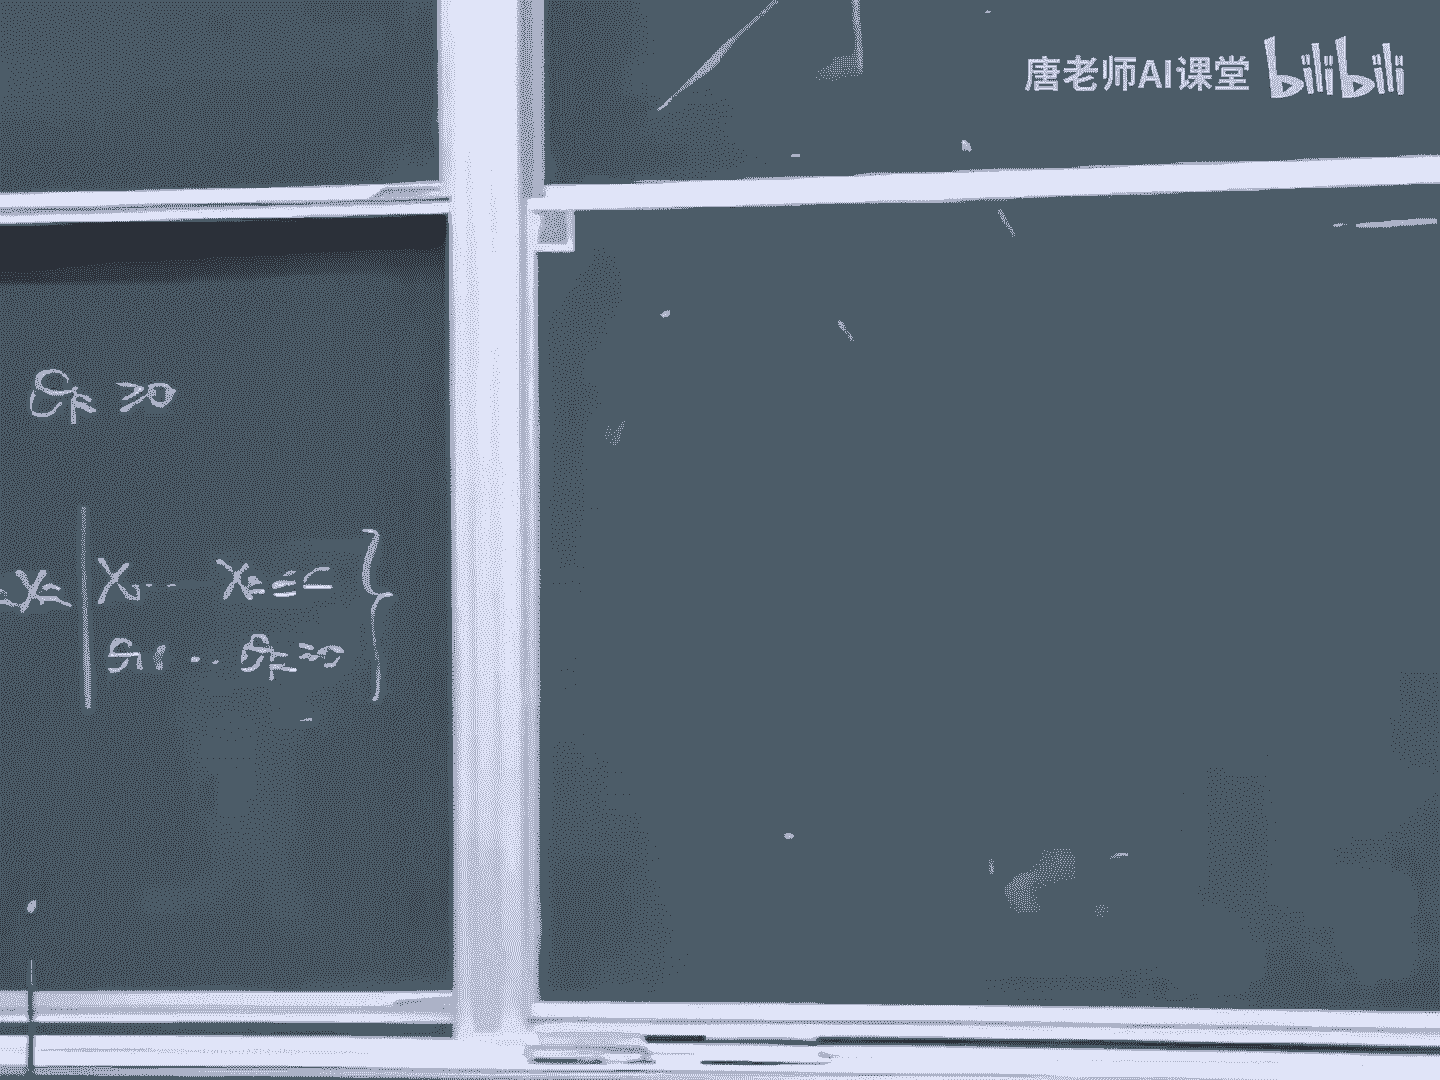 唐老师AI课堂 bilibili
θk ≥0
X1 ... Xk ∈ C
θ1 ... θk ≥0